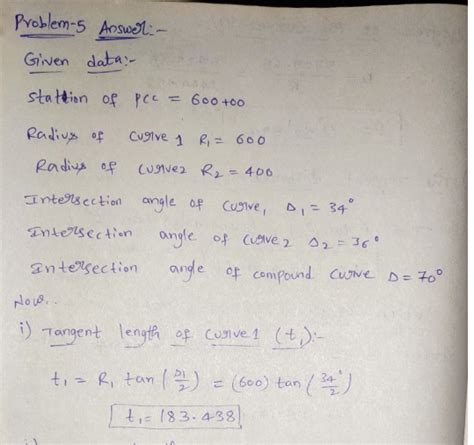 Problem-5 Answer:-
Given data:-
Stattion of PCC = 600+00
Radius of curve 1 R₁ = 600
Radius of curve2 R₂ = 400
Intersection angle of curve, Δ₁ = 34°
Intersection angle of curve2 Δ₂ = 36°
Intersection angle of compound curve Δ = 70°
Now..
i) Tangent length of curve1 (t₁):-
t₁ = R₁ tan (Δ₁/2) = (600) tan (34°/2)
t₁ = 183.438